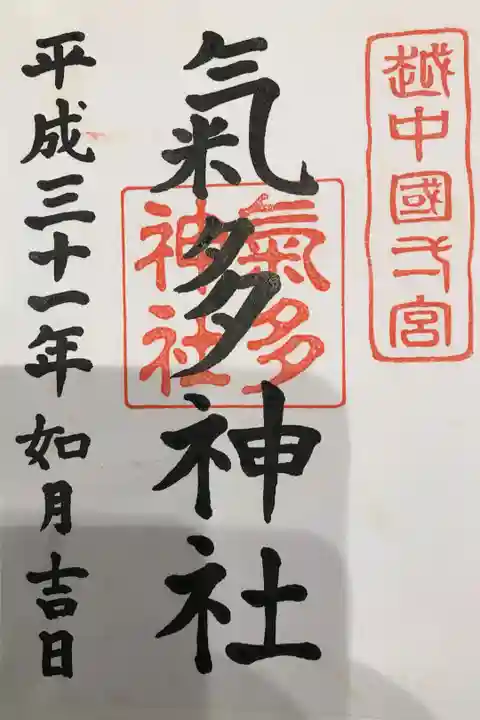 越中國弌宮
氣多神社
氣多
神社
平成三十一年如月吉日